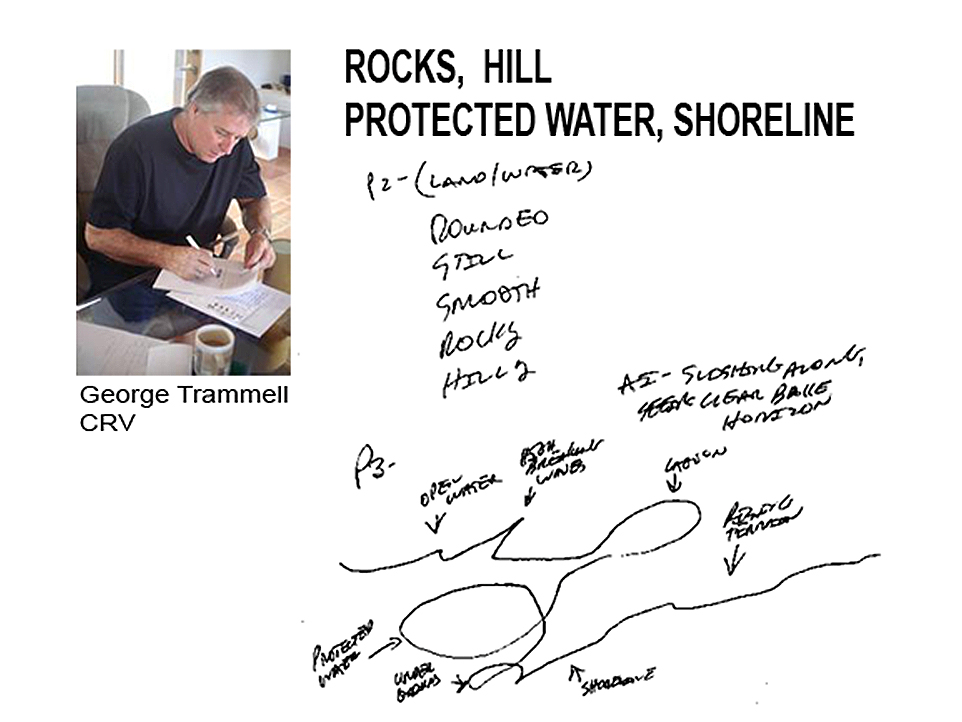 ROCKS, HILL
PROTECTED WATER, SHORELINE
George Trammell
CRV
P2-(LAND/WATER)
ROUNDED
STILL
SMOOTH
ROCKY
HILLY
AI- SLOSHING ALONG,
CLEAR
HORIZON
P3-
OPEN
WATER
BREAKING
WAVES
LAGOON
RISING
TERRAIN
PROTECTED
WATER
UNDER
SHORELINE